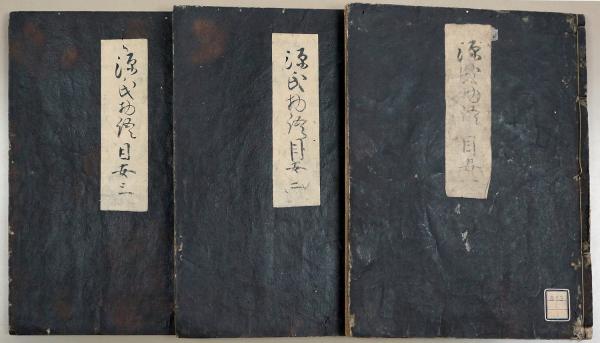 源氏物語目安一
源氏物語目安二
源氏物語目安三